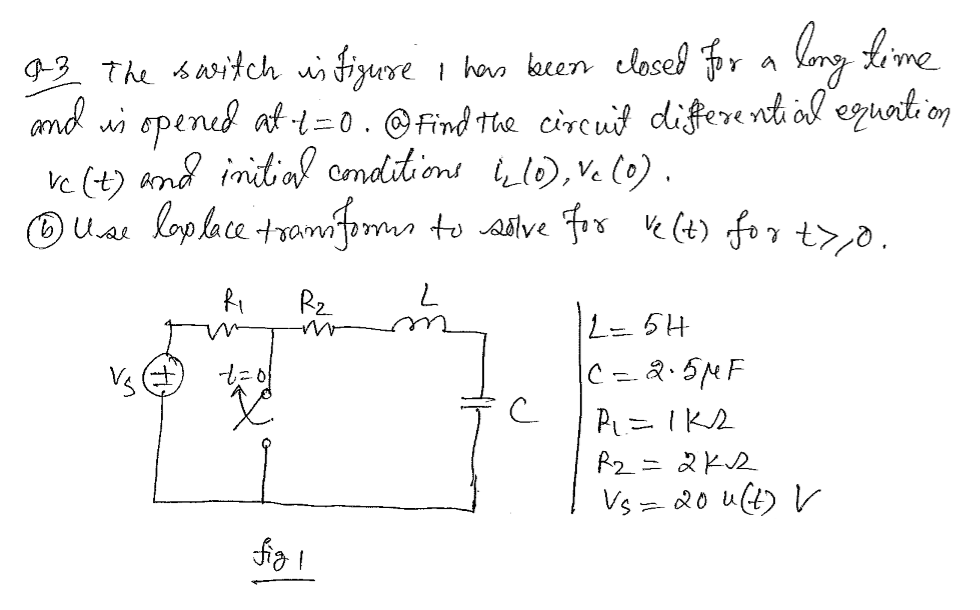 Q-3 The switch in figure 1 has been closed for a long time
and is opened at t=0. ⓐ Find the circuit differential equation
vc(t) and initial conditions iL(0), Vc(0).
ⓑ Use laplace transforms to solve for Vc(t) for t>,0.
R1 R2 L
Vs
t=0
C
L = 5H
C = 2.5μF
R1 = 1KΩ
R2 = 2KΩ
Vs = 20 u(t) V
fig 1